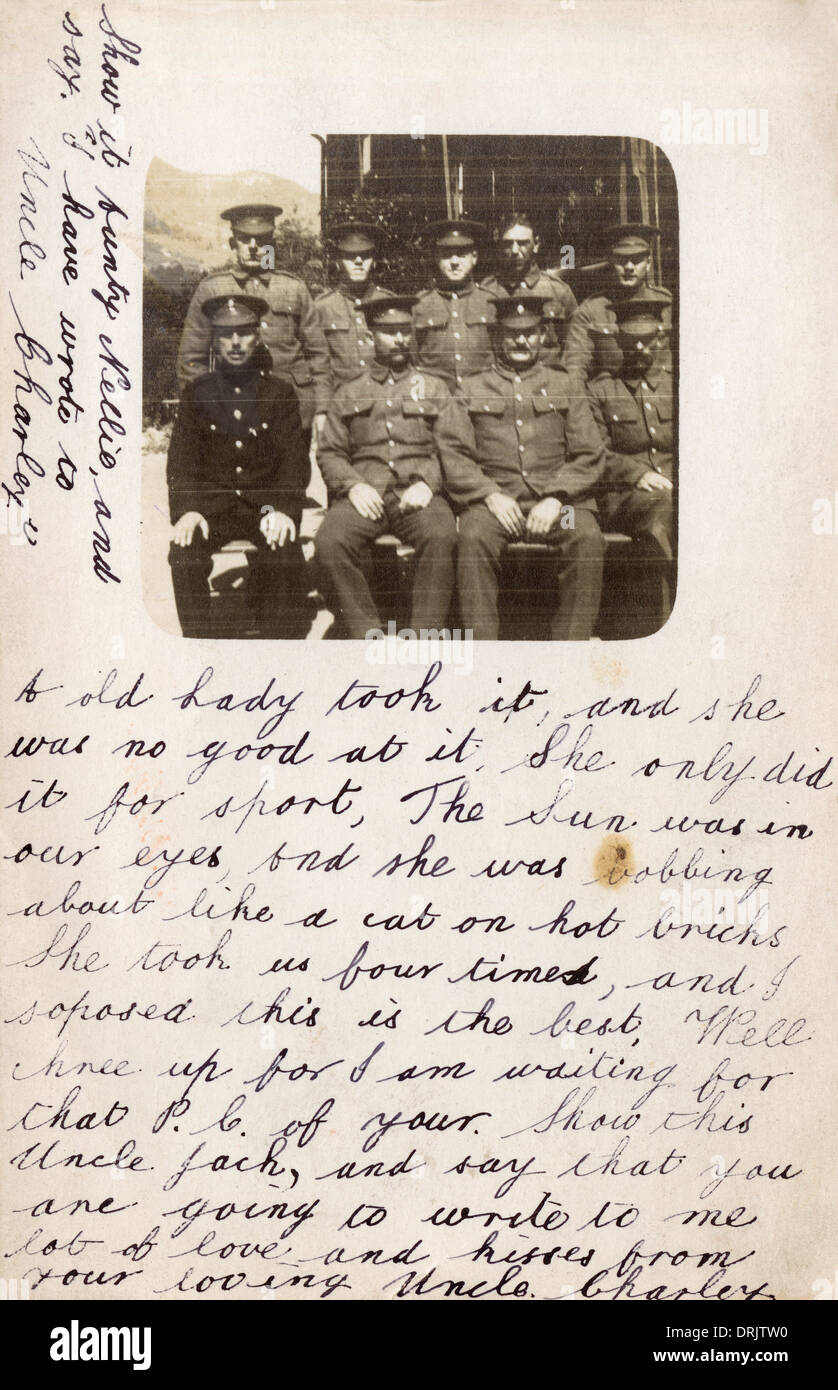 Show it Aunty Nellie, and
say. I have wrote to
Uncle Charley
A old Lady took it, and she
was no good at it, She only did
it for sport, The Sun was in
our eyes, And she was bobbing
about like a cat on hot bricks
She took us four times, and I
soposed this is the best, Well
up for I am waiting for
that P. C. of your. Show this
Uncle Jack, and say that you
are going to write to me
lot of love and kisses from
your loving Uncle. Charley
alamy
alamy
alamy
alamy
alamy
Image ID: DRJTW0
www.alamy.com